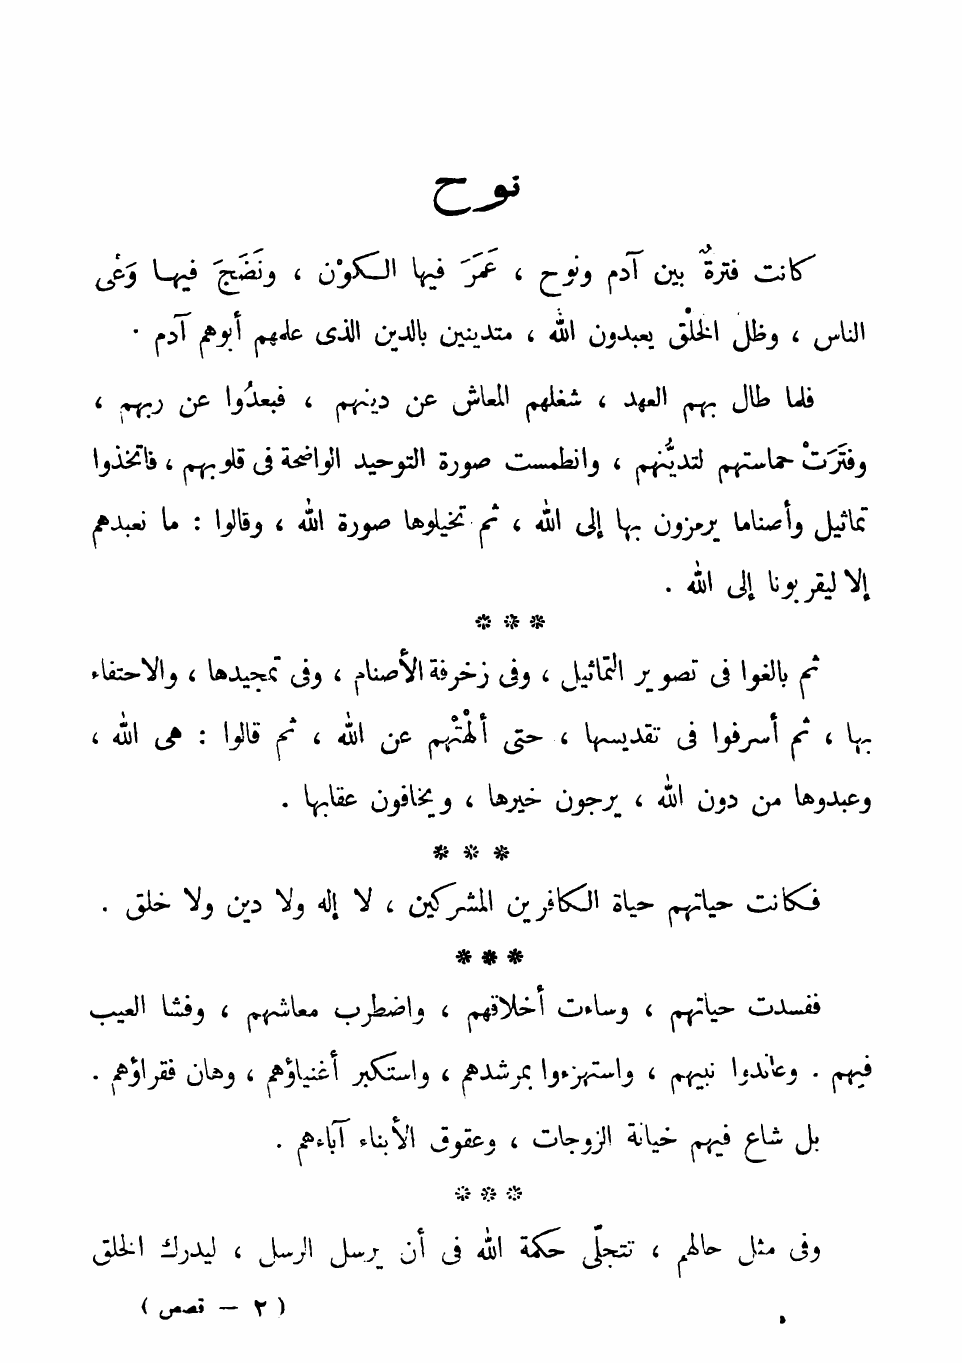 نوح
كانت فترةٌ بين آدم ونوح ، عَمَرَ فيها الكوْن ، ونَضَجَ فيها وَعْى
الناس ، وظل الخلْق يعبدون الله ، متدينين بالدين الذى علمهم أبوهم آدم .
فلما طال بهم العهد ، شغلهم المعاش عن دينهم ، فبعدُوا عن ربهم ،
وفتَرَتْ حماستهم لتديُّنهم ، وانطمست صورة التوحيد الواضحة فى قلوبهم ، فاتخذوا
تماثيل وأصناما يرمزون بها إلى الله ، ثم تخيلوها صورة الله ، وقالوا : ما نعبدهم
إلا ليقربونا إلى الله .
* * *
ثم بالغوا فى تصوير التماثيل ، وفى زخرفة الأصنام ، وفى تمجيدها ، والاحتفاء
بها ، ثم أسرفوا فى تقديسها ، حتى ألْهتْهم عن الله ، ثم قالوا : هى الله ،
وعبدوها من دون الله ، يرجون خيرها ، ويخافون عقابها .
* * *
فكانت حياتهم حياة الكافرين المشركين ، لا إله ولا دين ولا خلق .
* * *
ففسدت حياتهم ، وساءت أخلاقهم ، واضطرب معاشهم ، وفشا العيب
فيهم . وعاندوا نبيهم ، واستهزءوا بمرشدهم ، واستكبر أغنياؤهم ، وهان فقراؤهم .
بل شاع فيهم خيانة الزوجات ، وعقوق الأبناء آباءهم .
* * *
وفى مثل حالهم ، تتجلّى حكمة الله فى أن يرسل الرسل ، ليدرك الخلق
( ٢ — قصص )